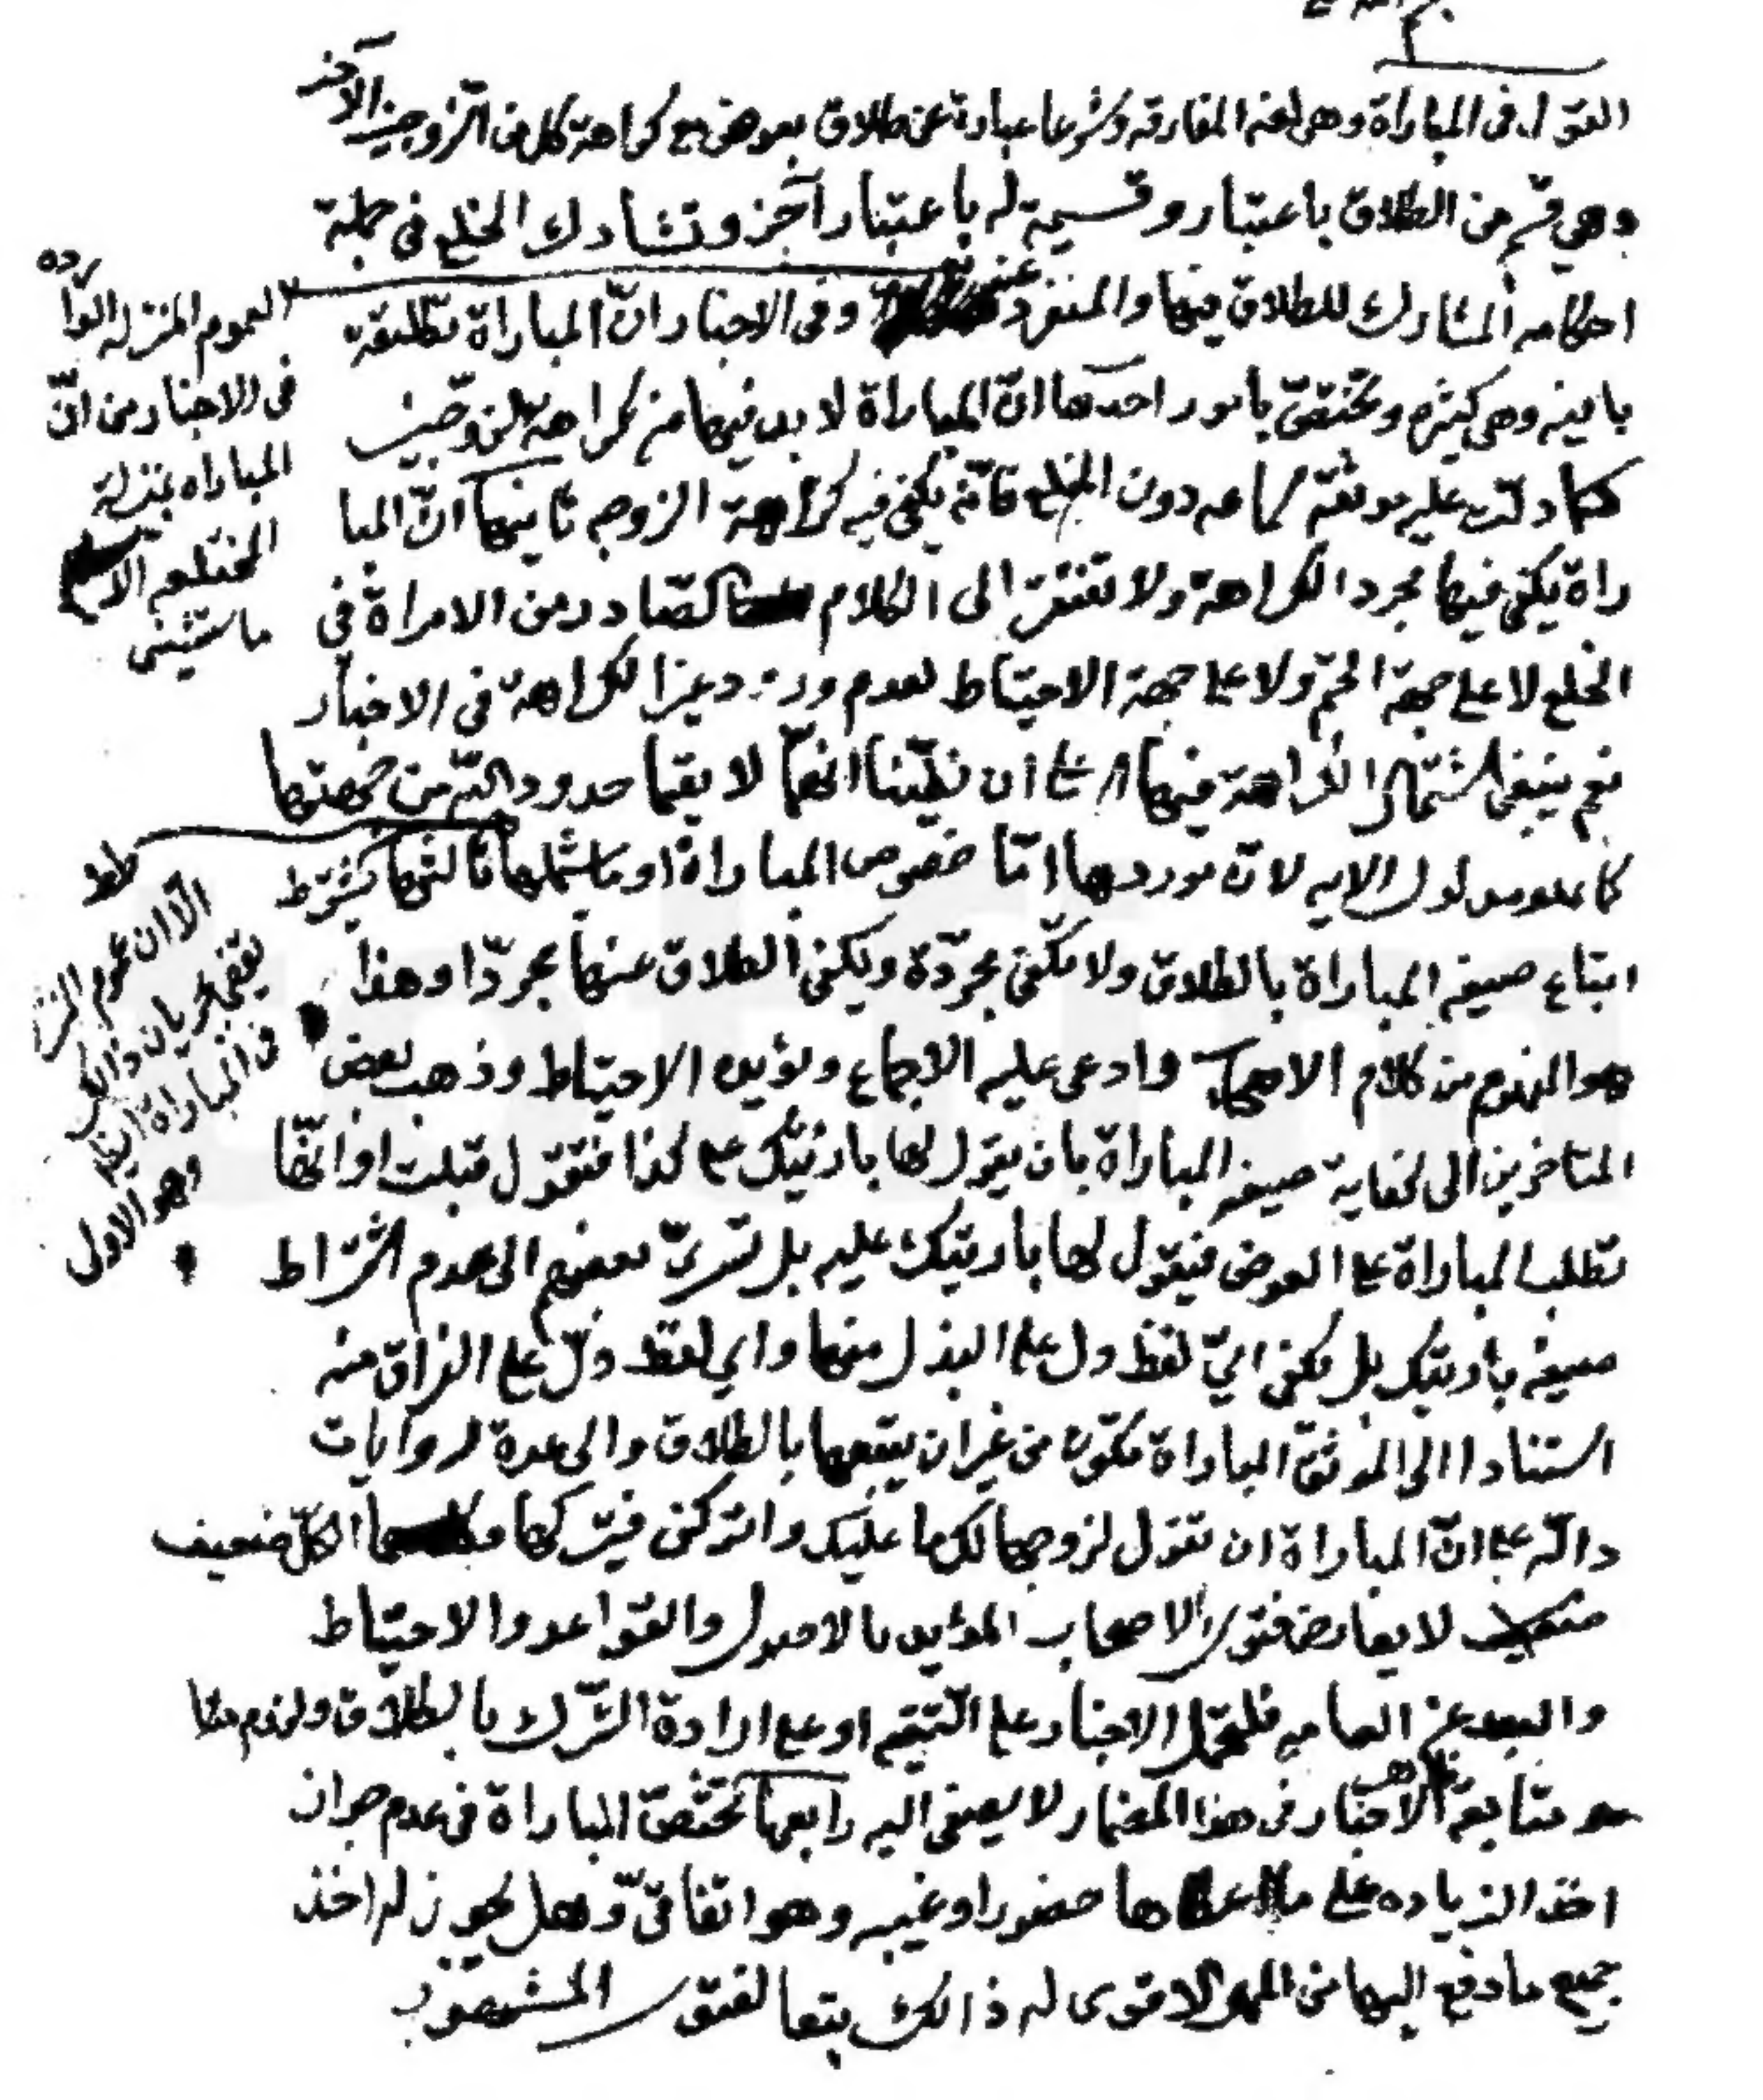 القول في المباراة وهي لغة المفارقه وشرعا عبارة عن طلاق بعوض مع كراهة كل من الزوجين الآخر
وهي قسم من الطلاق باعتبار وقسيمة له باعتبار آخر وتشارك الخلع في جملة
احكامه المشارك للطلاق فيها والمنفرد عنه وفي الاخبار انّ المباراة تطليقة
باينه وهي كثيره وتختصّ بامور احدها انّ المباراة لا بد فيها من كراهة الزوجين
كما دلت عليه موثقة سماعه دون الخلع فانّه يكفي فيه كراهة الزوجه ثانيها انّ المبا
راة يكفي فيها مجرد الكراهة ولا تفتقر الى الكلام الصادر من الامراة في
الخلع لا على جهة الحتم ولا على جهة الاحتياط لعدم ورود غير الكراهة في الاخبار
نعم ينبغي اشتمال الكراهة فيها على ان يظنّا انهما لا يقيما حدود الله من جهتها
كما هو مدلول الايه لانّ موردها امّا خصوص المباراة او ما يشملها ثالثها يشترط
اتباع صيغه المباراة بالطلاق ولا تكفي مجرّدة ويكفي الطلاق عنها مجردا وهذا
هو المفهوم من كلام الاصحاب وادعى عليه الاجماع ويؤيده الاحتياط وذهب بعض
المتاخرين الى كفاية صيغه المباراة بان يقول لها بارئتك على كذا فتقول قبلت او انّها
تطلب المباراة على العوض فيقول لها باريتك عليه بل تسرّى بعضهم الى عدم اشتراط
صيغه باريتك بل يكفي ايّ لفظ دل على البذل منها واي لفظ دلّ على الفراق منه
استنادا الى الموثق المباراة تكون من غير ان يتبعها بالطلاق والى عدة روايات
دالّه على انّ المباراة ان تقول لزوجها لك ما عليك واتركني فيتركها والكلّ ضعيف
لا يعارض فتوى الاصحاب المؤيد بالاصول والقواعد والاحتياط
والبعد عن العامه فلتحمل الاخبار على التقيه او على ارادة الترك بالطلاق ولزوم
متابعة ظاهر الاخبار في هذا المضمار لا يصغى اليه رابعها تختصّ المباراة في عدم جواز
اخذ الزياده على ما اعطاها حضورا وغيبه وهو اتفاقيّ وهل يجوز له اخذ
جميع ما دفع اليها من المهر الاقوى له ذالك تبعا لفتوى المشهور
لعموم المنزله الوارده
في الاخبار من انّ
المباراه بمنزلة
المختلعه الا
ما استثنى
الّا ان عموم
يقضي بجريان ذالك
في المباراة ايضا
وهو الاولى